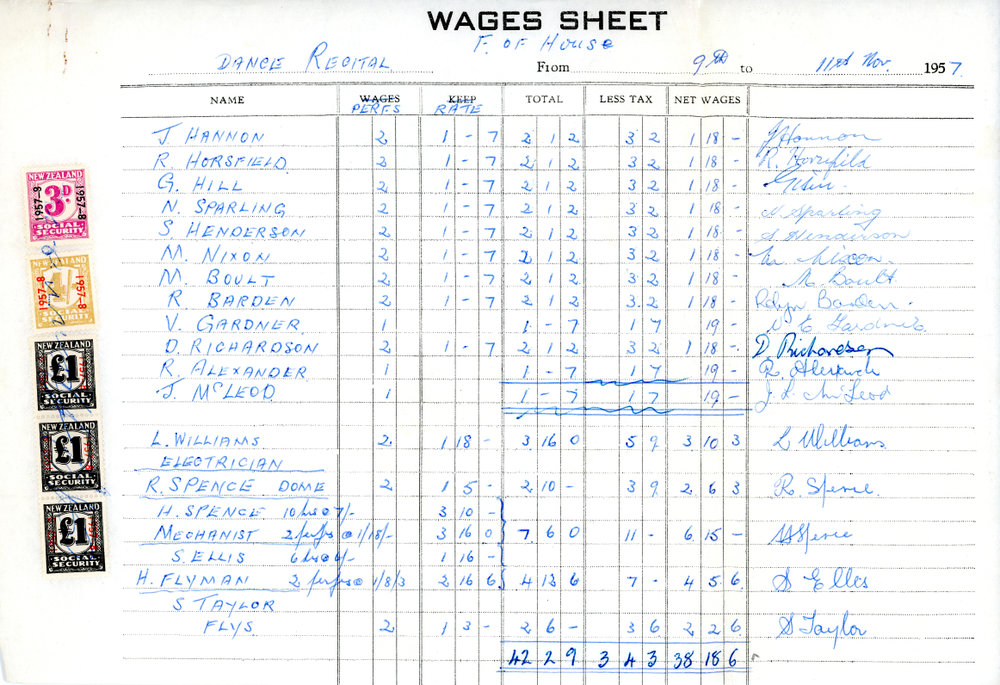 WAGES SHEET
F. OF HOUSE
DANCE RECITAL From 9th to 11th Nov. 1957.
NAME WAGES KEEP TOTAL LESS TAX NET WAGES
PERFS RATE
J. HANNON 2 1 - 7 2 1 2 3 2 1 18 - J Hannon
R. HORSFIELD 2 1 - 7 2 1 2 3 2 1 18 - R. Horsfield
G. HILL 2 1 - 7 2 1 2 3 2 1 18 -
N. SPARLING 2 1 - 7 2 1 2 3 2 1 18 - N Sparling
S HENDERSON 2 1 - 7 2 1 2 3 2 1 18 - S Henderson
M. NIXON 2 1 - 7 2 1 2 3 2 1 18 - M. Nixon.
M. BOULT 2 1 - 7 2 1 2 3 2 1 18 - M. Boult
R BARDEN 2 1 - 7 2 1 2 3 2 1 18 - Robyn Barden.
V. GARDNER 1 1 - 7 1 7 19 - V E Gardner
D. RICHARDSON 2 1 - 7 2 1 2 3 2 1 18 - D Richardson
R. ALEXANDER 1 1 - 7 1 7 19 - R. Alexander
J. MCLEOD 1 1 - 7 1 7 19 - McLeod
L. WILLIAMS 2 1 18 - 3 16 0 5 9 3 10 3 L Williams
ELECTRICIAN
R. SPENCE DOME 2 1 5 - 2 10 - 3 9 2 6 3 R Spence.
H. SPENCE 10 hrs @ 7/- 3 10 -
MECHANIST 2 perfs @ 1/18/- 3 16 0 7 6 0 11 - 6 15 - H Spence
S. ELLIS 6 hrs @ 6/- 1 16 -
H. FLYMAN 2 perfs @ 1/8/3 2 16 6 4 12 6 7 - 4 5 6 S Elles
S TAYLOR
FLYS 2 1 3 - 2 6 - 3 6 2 2 6 S Taylor
42 2 9 3 4 3 38 18 6
NEW ZEALAND
3D
1957-8 1957-8
SOCIAL SECURITY
NEW ZEALAND
4/-
1957-8 1957-8
SOCIAL SECURITY
NEW ZEALAND
£1
SOCIAL SECURITY
NEW ZEALAND
£1
SOCIAL SECURITY
NEW ZEALAND
£1
SOCIAL SECURITY